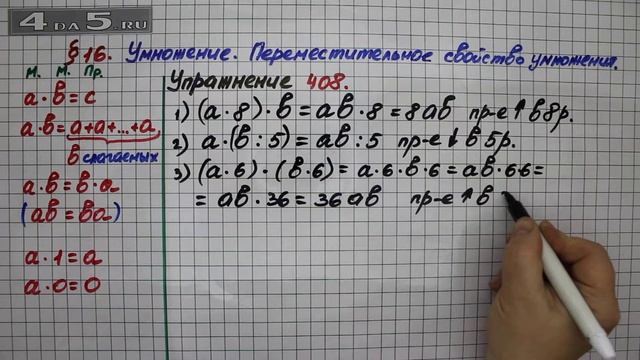 4DA5.RU
§16. Умножение. Переместительное свойство умножения.
м. м. Пр.
a·b=c
a·b=a+a+...+a
b слагаемых
a·b=b·a
(ab=ba)
a·1=a
a·0=0
Упражнение 408.
1) (a·8)·b=ab·8=8ab пр-е↑в 8р.
2) a·(b:5)=ab:5 пр-е↓в 5р.
3) (a·6)·(b·6)=a·6·b·6=ab·6·6=
=ab·36=36ab пр-е↑в